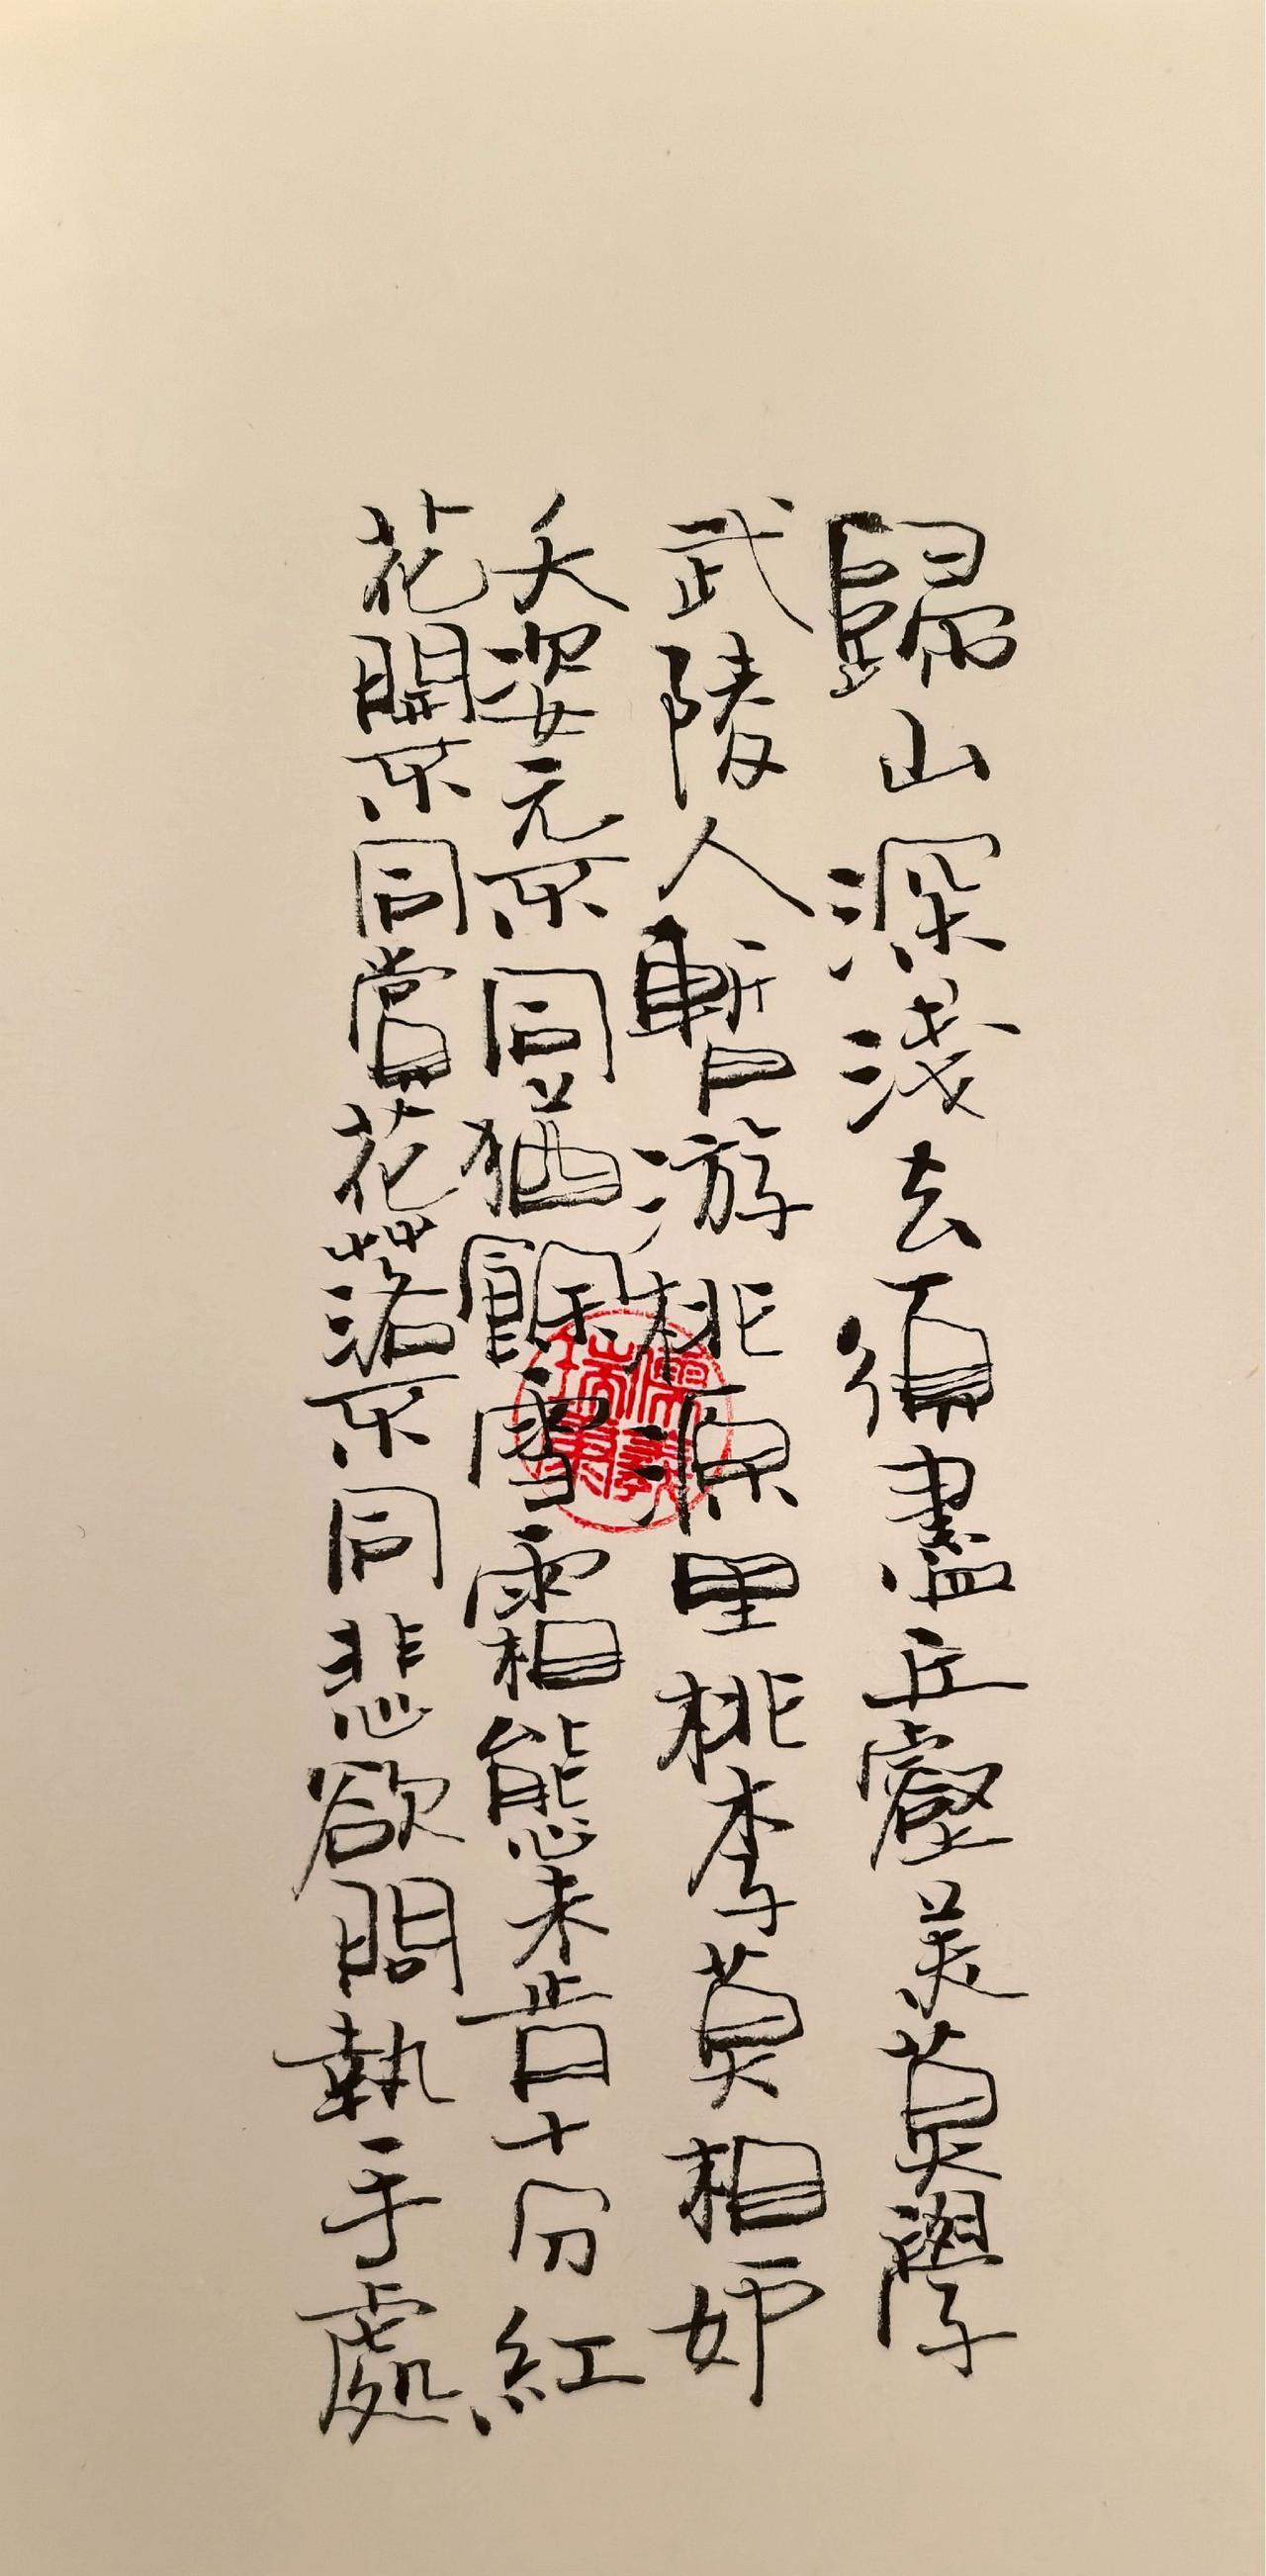 歸山深淺去須盡丘壑美莫學
武陵人暫游桃源里桃李莫相妒
夭姿元不同猶餘雪霜態未肯十分紅
花開不同賞花落不同悲欲問執手處